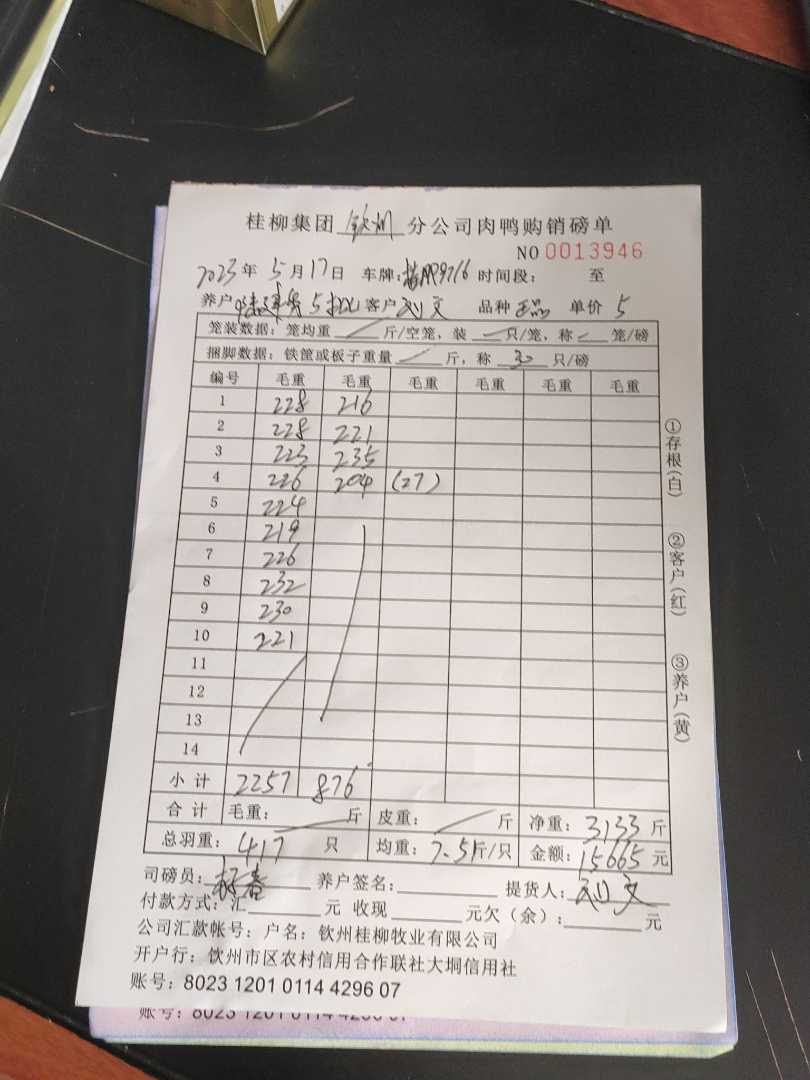 桂柳集团 钦州 分公司肉鸭购销磅单
NO 0013946
2023 年 5 月 17 日 车牌: 时间段: 至
养户 客户 刘文 品种 正品 单价 5
笼装数据: 笼均重 斤/空笼, 装 只/笼, 称 笼/磅
捆脚数据: 铁筐或板子重量 斤, 称 30 只/磅
编号 毛重 毛重 毛重 毛重 毛重 毛重
1 228 216
2 228 221
3 223 235
4 226 204 (27)
5 224
6 219
7 226
8 232
9 230
10 221
11
12
13
14
小计 2257 876
合计 毛重: 斤 皮重: 斤 净重: 3133 斤
总羽重: 417 只 均重: 7.5斤/只 金额: 15665 元
司磅员: 养户签名: 提货人: 刘文
付款方式: 汇 元 收现 元欠(余): 元
公司汇款帐号: 户名: 钦州桂柳牧业有限公司
开户行: 钦州市区农村信用合作联社大垌信用社
账号: 8023 1201 0114 4296 07
①存根(白)
②客户(红)
③养户(黄)
账号: 8023 1201 0114 4296 07